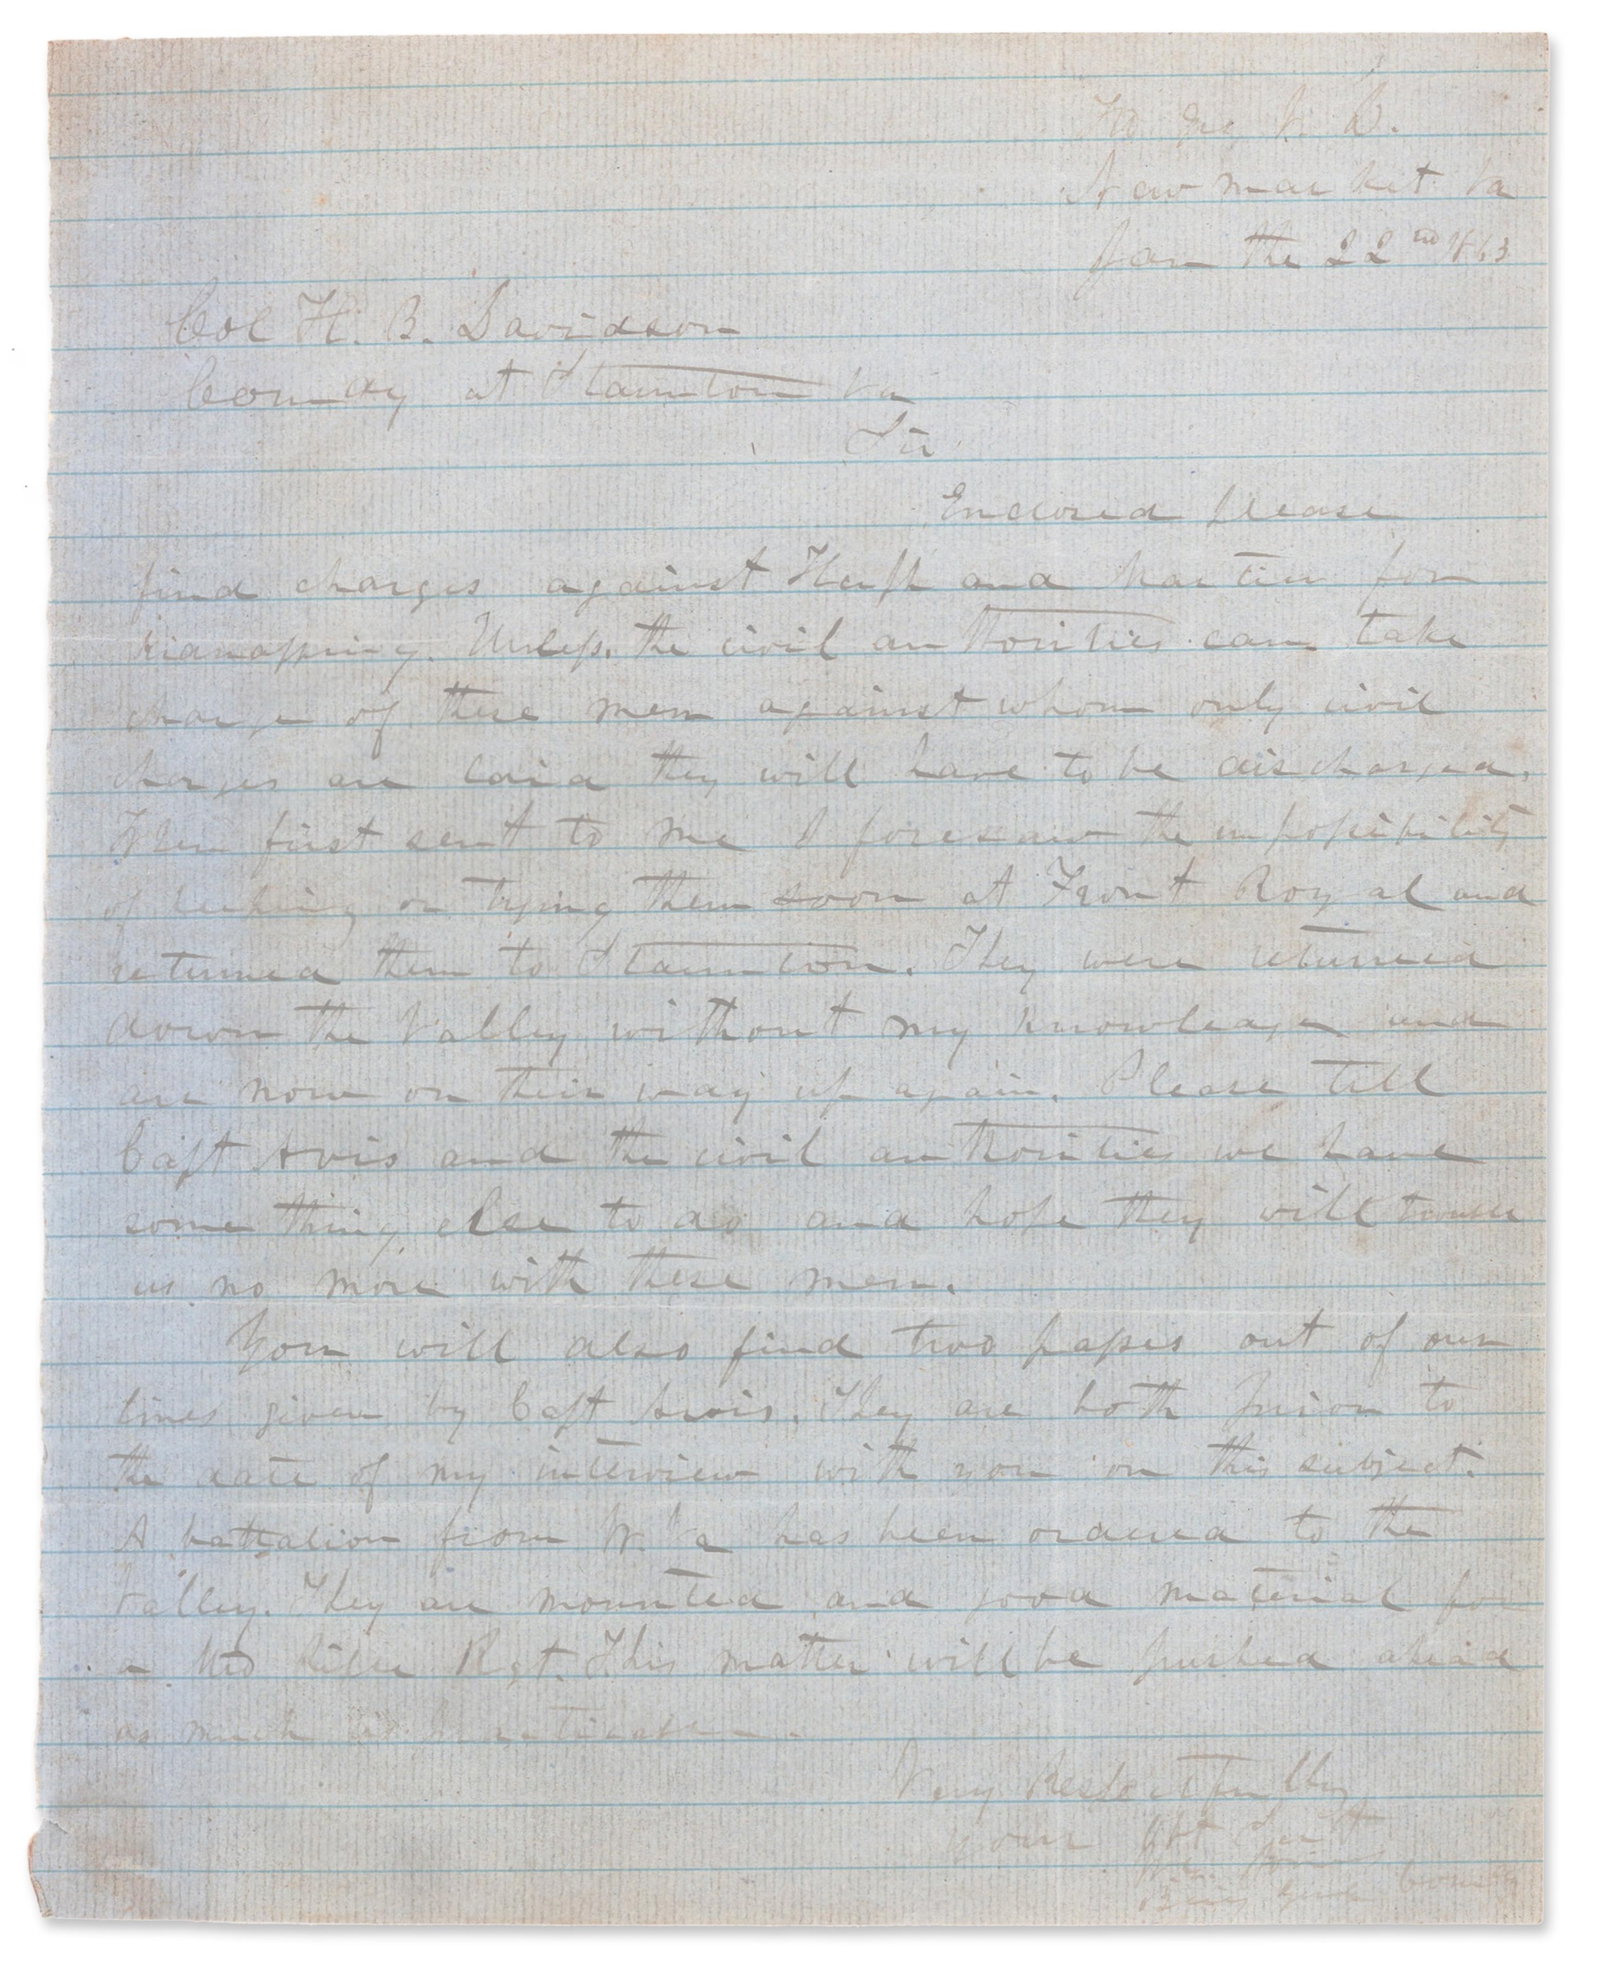 Hd Qrs V. D.
New Market Va
Jan the 22nd 1863
Col H. B. Davidson
Comdg at Staunton Va
Sir
Enclosed please
find charges against and Martin for
kidnapping. Unless the civil authorities can take
charge of these men against whom only civil
charges are laid they will have to be discharged.
When first sent to me I foresaw the impossibility
of keeping or trying them soon at Front Royal and
returned them to Staunton. They were returned
down the Valley without my knowledge and
are now on their way up again. Please tell
Capt Avis and the civil authorities we have
some thing else to do and hope they will trouble
us no more with these men.
You will also find two passes out of our
lines given by Capt Avis. They are both prior to
the date of my interview with you on this subject.
A battalion from W. Va has been ordered to the
Valley. They are mounted and good material for
a Md Rgt. This matter will be pushed ahead
as much as practicable.
Very Respectfully
Your Obt Servt
Brig Genl Comdg